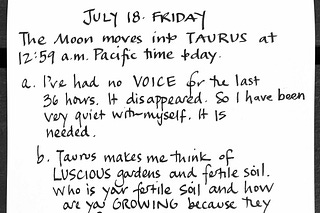 JULY 18. FRIDAY
The Moon moves into TAURUS at
12:59 a.m. Pacific time today.
a. I've had no VOICE for the last
36 hours. It disappeared. So I have been
very quiet with myself. It is
needed.
b. Taurus makes me think of
LUSCIOUS gardens and fertile soil.
Who is your fertile soil and how
are you GROWING because they